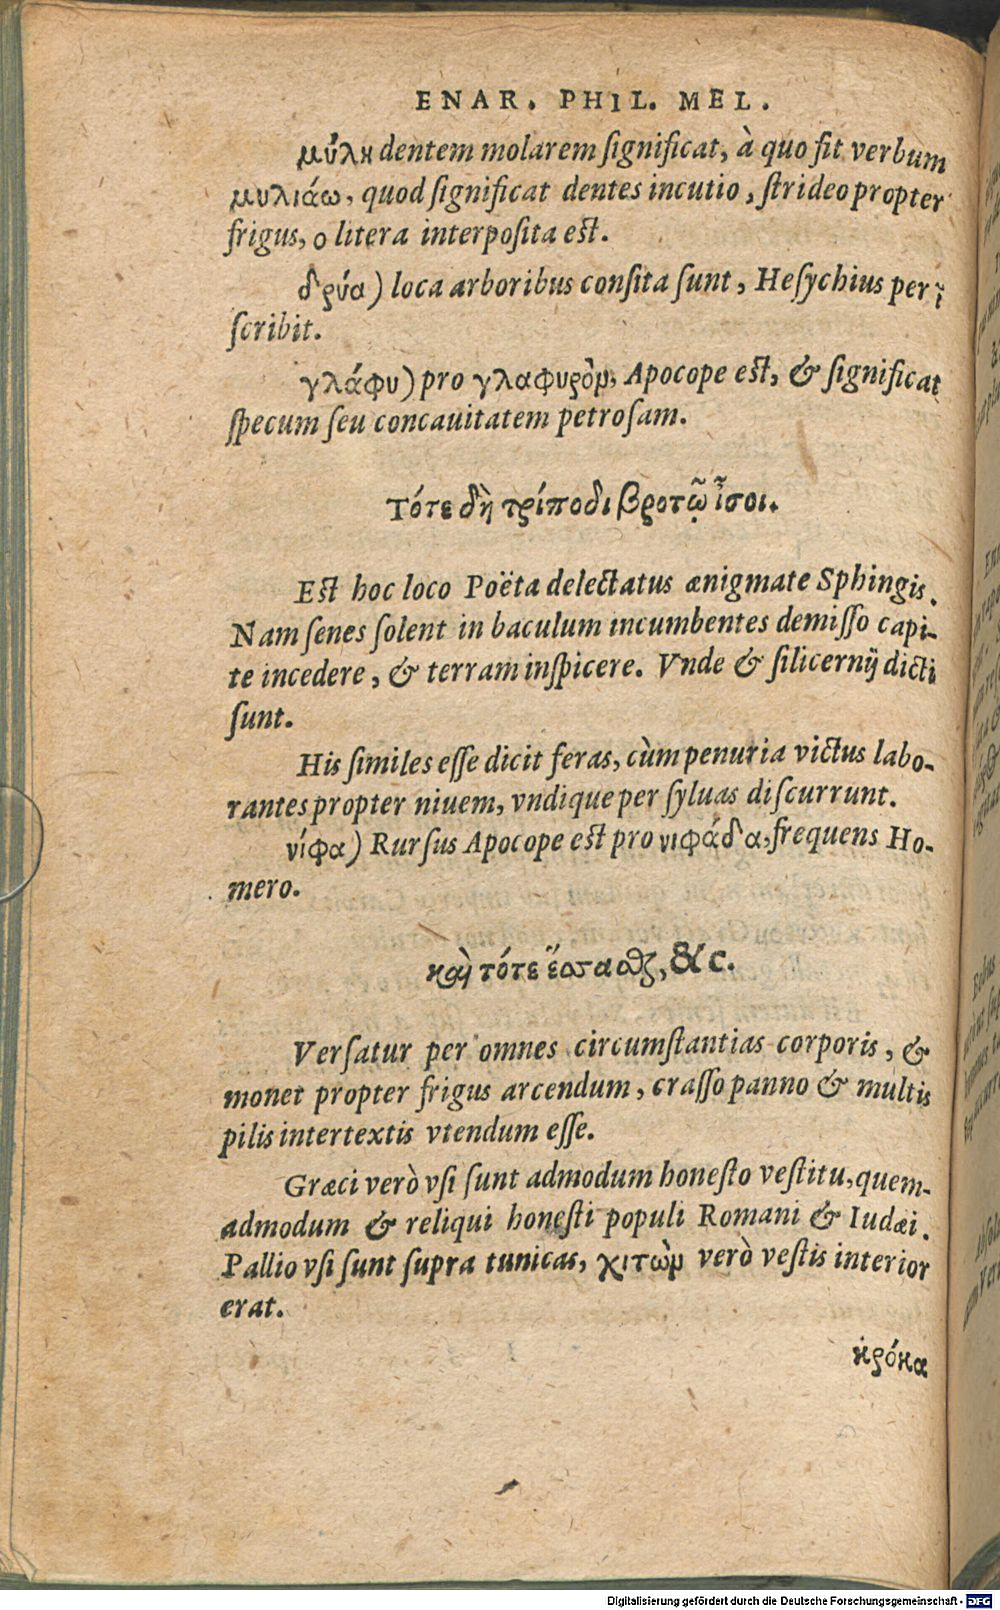 ENAR. PHIL. MEL.
μύλη dentem molarem ſignificat, à quo fit verbum
μυλιάω, quod ſignificat dentes incutio, ſtrideo propter
frigus, o litera interpoſita eſt.
δρύα) loca arboribus conſita ſunt, Heſychius per ῖ
ſcribit.
γλάφυ) pro γλαφυρὸν, Apocope eſt, & ſignificat
ſpecum ſeu concauitatem petroſam.
Τότε δὴ τρίποδι βροτῷ ἶσοι.
Eſt hoc loco Poëta delectatus ænigmate Sphingis.
Nam ſenes ſolent in baculum incumbentes demiſſo capi-
te incedere, & terram inſpicere. Vnde & ſilicernij dicti
ſunt.
His ſimiles eſſe dicit feras, cùm penuria victus labo-
rantes propter niuem, vndique per ſyluas diſcurrunt.
νίφα) Rurſus Apocope eſt pro νιφάδα, frequens Ho-
mero.
καὶ τότε ἕσσασθαι, &c.
Verſatur per omnes circumſtantias corporis, &
monet propter frigus arcendum, craſſo panno & multis
pilis intertextis vtendum eſſe.
Græci verò vſi ſunt admodum honeſto veſtitu, quem-
admodum & reliqui honeſti populi Romani & Iudæi.
Pallio vſi ſunt ſupra tunicas, χιτὼν verò veſtis interior
erat.
κρόκα
Digitalisierung gefördert durch die Deutsche Forschungsgemeinschaft - DFG